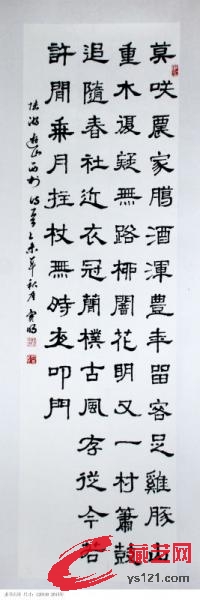 莫咲農家臘酒渾豊年留客足雞豚山
重水復疑無路柳闇花明又一村簫鼓
追隨春社近衣冠簡樸古風存從今若
許閒乘月拄杖無時夜叩門
陸游遊山西村詩一首乙未年秋月
ys121.com